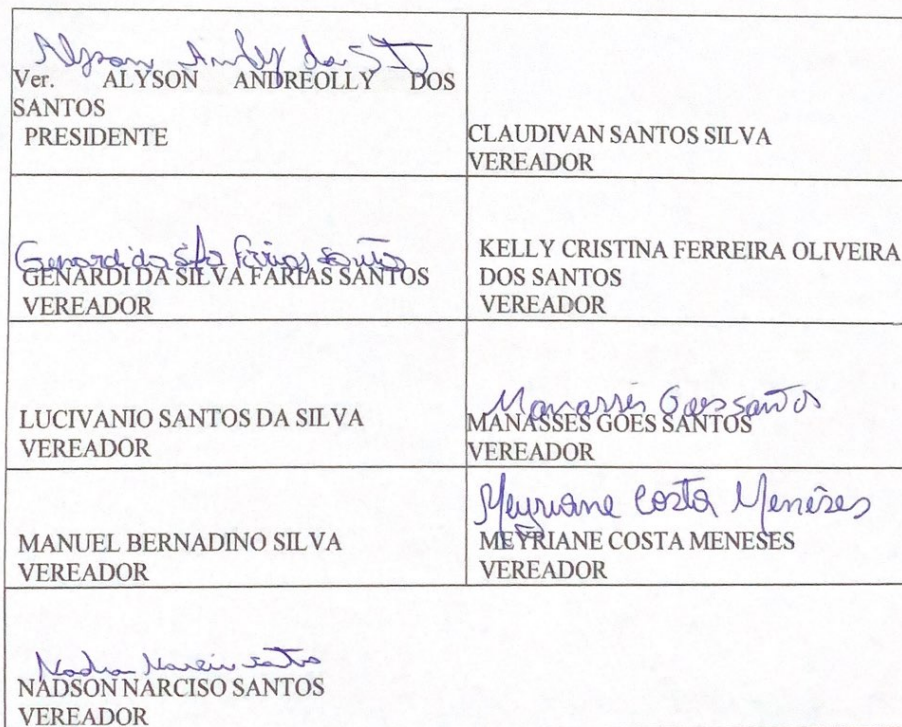 Alyson Andley dos S
Ver. ALYSON ANDREOLLY DOS
SANTOS
PRESIDENTE
CLAUDIVAN SANTOS SILVA
VEREADOR
Genardi da Silva Farias Santos
GENARDI DA SILVA FARIAS SANTOS
VEREADOR
KELLY CRISTINA FERREIRA OLIVEIRA
DOS SANTOS
VEREADOR
LUCIVANIO SANTOS DA SILVA
VEREADOR
Manassés Goes santos
MANASSES GOES SANTOS
VEREADOR
MANUEL BERNADINO SILVA
VEREADOR
Meyriane Costa Menêses
MEYRIANE COSTA MENESES
VEREADOR
Nadson Narciso santos
NADSON NARCISO SANTOS
VEREADOR